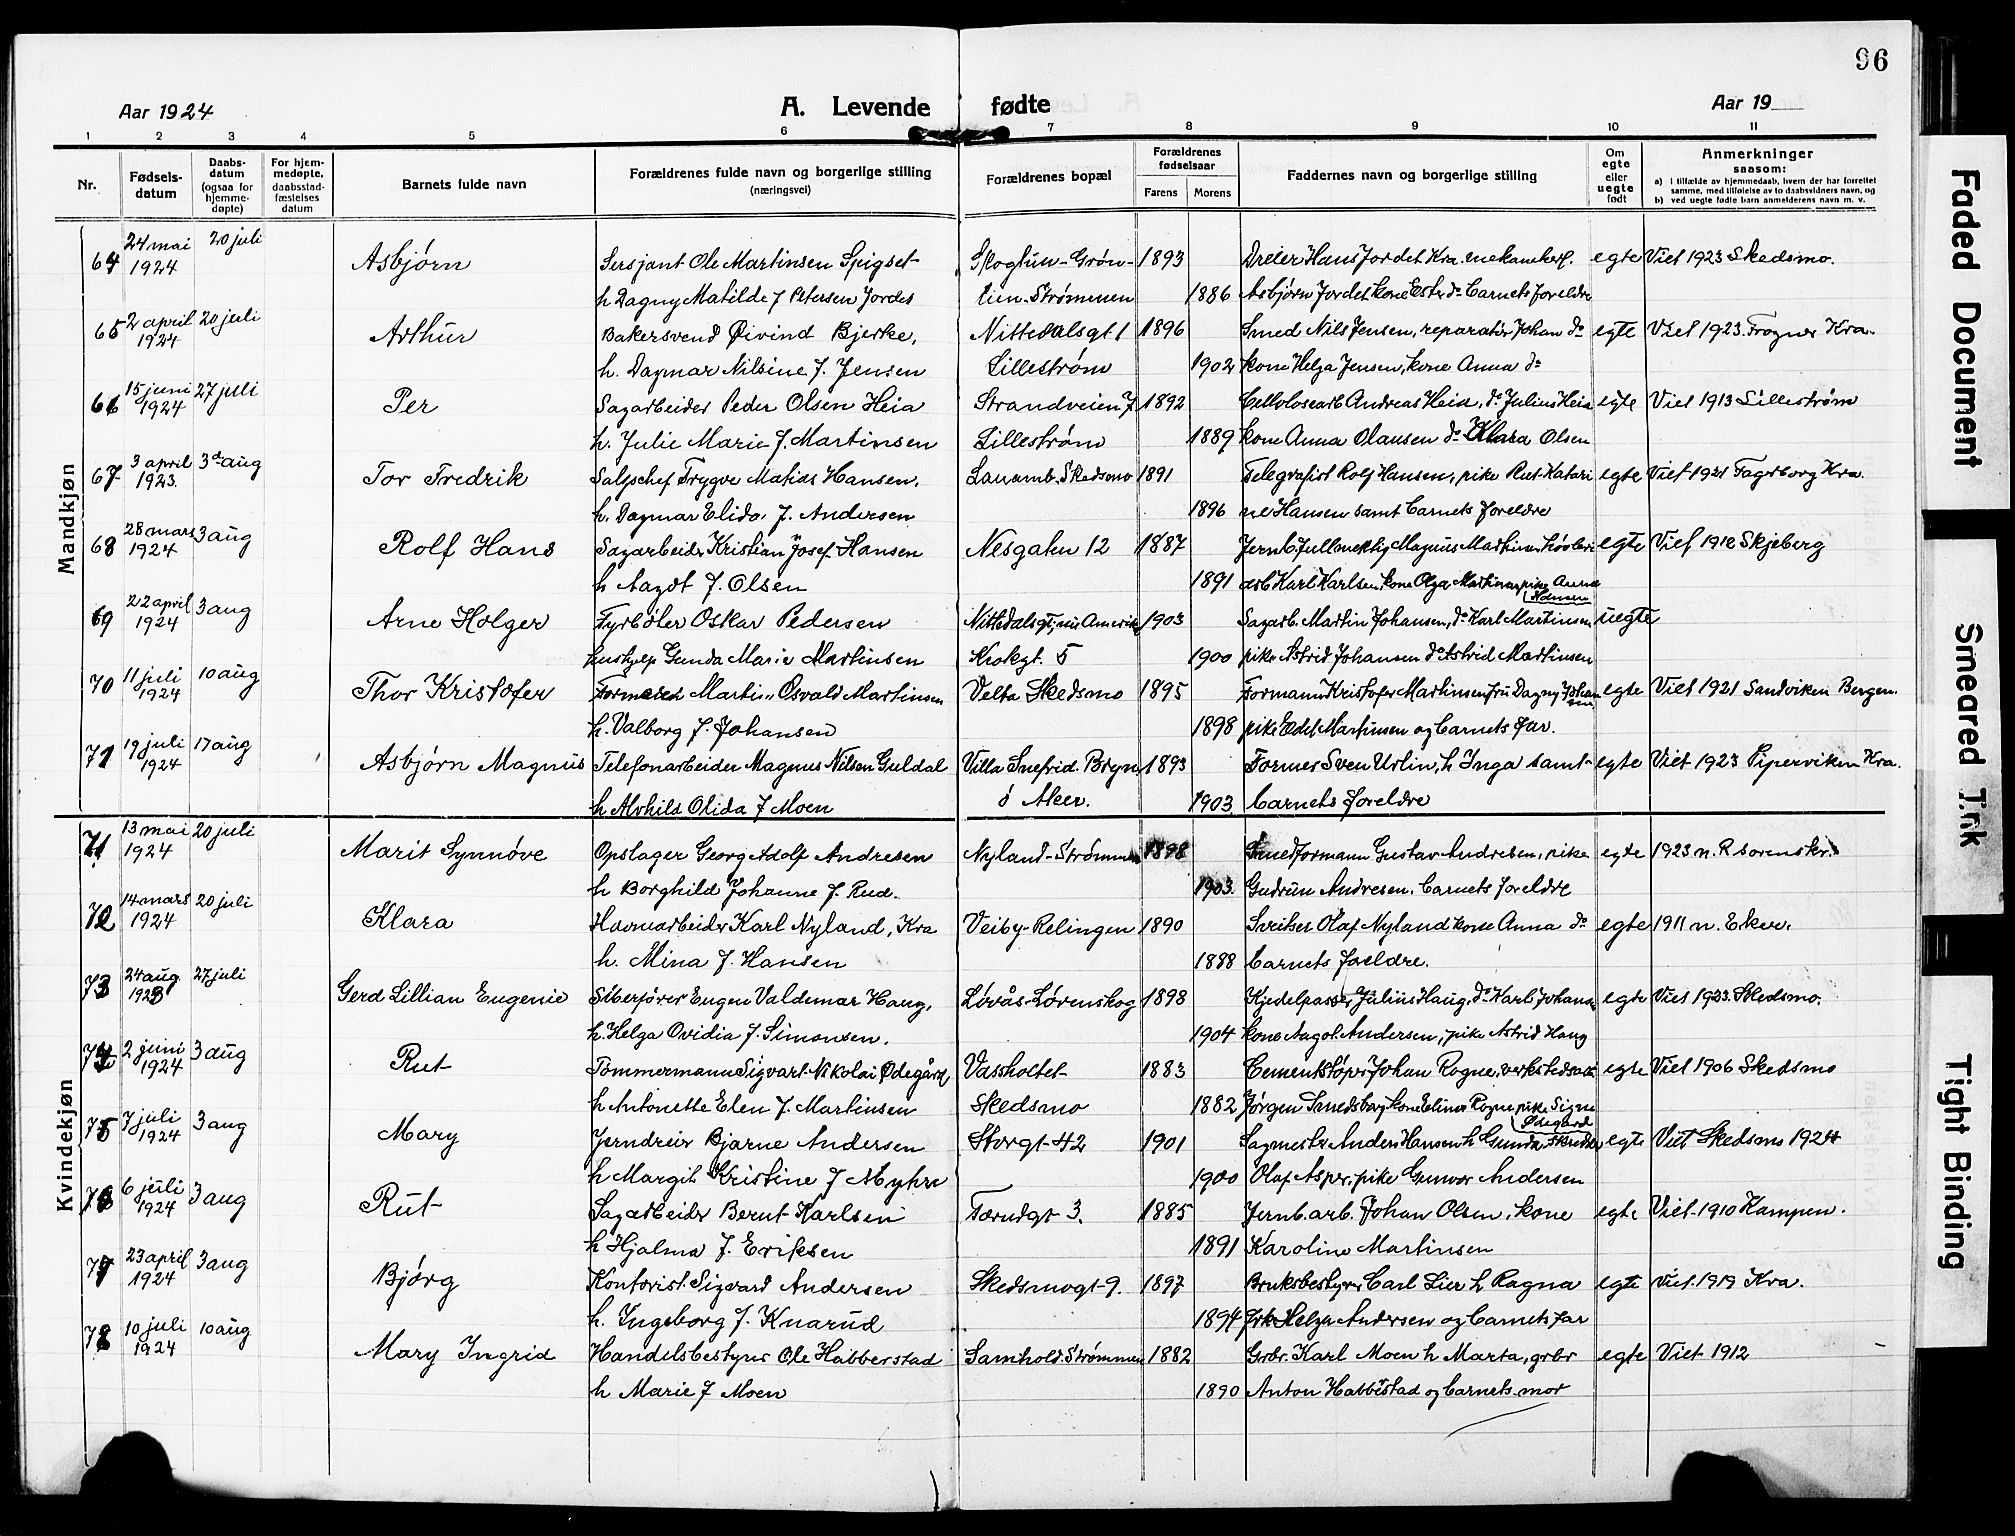 96
Aar 1924 A. Levende fødte Aar 19
1 2 3 4 5 6 7 8 9 10 11
Nr. Fødsels-datum Daabs-datum (ogsaa for hjemme-døpte) For hjem-medøpte, daabsstad-fæstelses datum Barnets fulde navn Forældrenes fulde navn og borgerlige stilling (næringsvei) Forældrenes bopæl Forældrenes fødselsaar Farens Morens Faddernes navn og borgerlige stilling Om egte eller uegte født Anmerkninger saasom: a) i tilfælde av hjemmedaab, hvem der har forrettet samme, med tilføielse av to daabsvidners navn, og b) ved uegte fødte barn anmelderens navn m. v.
Mandkjøn
64 24 mai 1924 20 juli Asbjørn Sersjant Ole Martinsen Spigset Skoglun-Grøn- 1893 Dreier Hans Jordet Kra. egte Viet 1923 Skedsmo.
h Dagny Matilde f Petersen Jordet lien-Strømmen 1886 Asbjørn Jordet kone Ester do barnets foreldre
65 2 april 1924 20 juli Arthur Bakersvend Øivind Bjerke, Nittedalsgt 1 1896 Smed Nils Jensen, reparatør Johan do egte Viet 1923. Frogner Kra.
h. Dagmar Nilsine f. Jensen Lillestrøm 1902 kone Helga Jensen, kone Anna do
66 15 juni 1924 27 juli Per Sagarbeider Peder Olsen Heia Strandveien 7 1892 Cellulosearb Andreas Heia, do Julius Heia egte Viet 1913 Lillestrøm
h. Julie Marie f. Martinsen Lillestrøm 1889 kone Anna Olausen do Klara Olsen
67 3 april 1923. 3d aug Tor Fredrik Salgschef Trygve Matias Hansen. Skedsmo 1891 Telegrafist Rolf Hansen, pike Rut Katari egte Viet 1921 Fagerborg Kra.
h. Dagmar Elida f. Andersen 1896 ne Hansen samt barnets foreldre
68 28 mars 1924 3 aug Rolf Hans Sagarbeider Kristian Josef Hansen Nesgaten 12 1887 Jernb.fullmektig Magnus Martinsen egte Viet 1912 Skjeberg
h Aagot f. Olsen 1891 arb Karl Karlsen, kone Olga Martinsen pike Anna Hansen
69 22 april 1924 3 aug Arne Holger Fyrbøter Oskar Pedersen Nittedalsgt; nu Amerika 1903 Sagarb. Martin Johansen, do Karl Martinsen uegte
hushjelp Gunda Marie Martinsen Krokgt. 5 1900 pike Astrid Johansen do Astrid Martinsen
70 11 juli 1924 10 aug Thor Kristofer Martin Osvald Martinsen Velta Skedsmo 1895 Formann Kristofer Martinsen fru Dagny Johansen egte Viet 1921 Sandviken Bergen.
h. Valborg f. Johansen 1898 pike Martinsen og barnets far.
71 19 juli 1924 17 aug Asbjørn Magnus Telefonarbeider Magnus Nilsen Guldal Villa Snefrid. Bryn 1893 Former Sven Urlin, h Inga samt egte Viet 1923 Piperviken Kra.
h Alvhild Olida f Moen ø Aker. 1903 barnets foreldre
Kvindekjøn
71 13 mai 1924 20 juli Marit Synnøve Opslager Georg Adolf Andresen Nyland-Strømmen 1898 Smedformann Gustav Andresen, pike egte 1923 n. R sorenskr.
h Borghild Johanne f. Rud. 1903. Gudrun Andresen. barnets foreldre
72 14 mars 1924 20 juli Klara Havnearbeider Karl Nyland, Kra Veiby-Relingen 1890 Olaf Nyland kone Anna do egte 1911 n. Eker.
h. Mina f. Hansen 1888 barnets foreldre.
73 24 aug 1923 27 juli Gerd Lillian Eugenie Eugen Valdemar Haug, Løvås-Lørenskog 1898 Kjedelpasser Julius Haug, do Karl Johansen egte Viet 1923. Skedsmo.
h. Helga Ovidia f. Simonsen. 1904 kone Aagot Andersen, pike Astrid Haug
74 2 juni 1924 3 aug Rut Tømmermann Sigvart Nikolai Ødegård Vassholtet 1883 Cementstøper Johan Rogne, egte Viet 1906 Skedsmo
h Antonette Elen f. Martinsen Skedsmo 1882 Jørgen Smedsborg kone Elinor Rogne pike Signe Ødegård
75 7 juli 1924 3 aug Mary Jerndreier Bjarne Andersen Storgt 42 1901 Sagmester Anders Hansen h Gunda, egte Viet Skedsmo 1924
h Margit Kristine f Myhre 1900 Olaf Asper, pike Gunvor Andersen
76 6 juli 1924 3 aug Rut Sagarbeider Bernt Karlsen Tærudgt 3. 1885 Jernb. arb. Johan Olsen, kone egte Viet 1910 Kampen.
h Hjalma f. Eriksen 1891 Karoline Martinsen
77 23 april 1924 3 aug Bjørg Kontorist Sigvard Andersen Skedsmogt 9. 1897 Bruksbestyrer Carl Lier h Ragna egte Viet 1919 Kra.
h. Ingeborg f. Knarud 1894 frk Helga Andersen og barnets far
78 10 juli 1924 10 aug Mary Ingrid Handelsbestyrer Ole Habberstad Samhold. Strømmen 1882 Grbr. Karl Moen h Marta, grbr egte Viet 1912
h Marie f Moen 1890 Anton Habberstad og barnets mor
Faded Document
Smeared Ink
Tight Binding